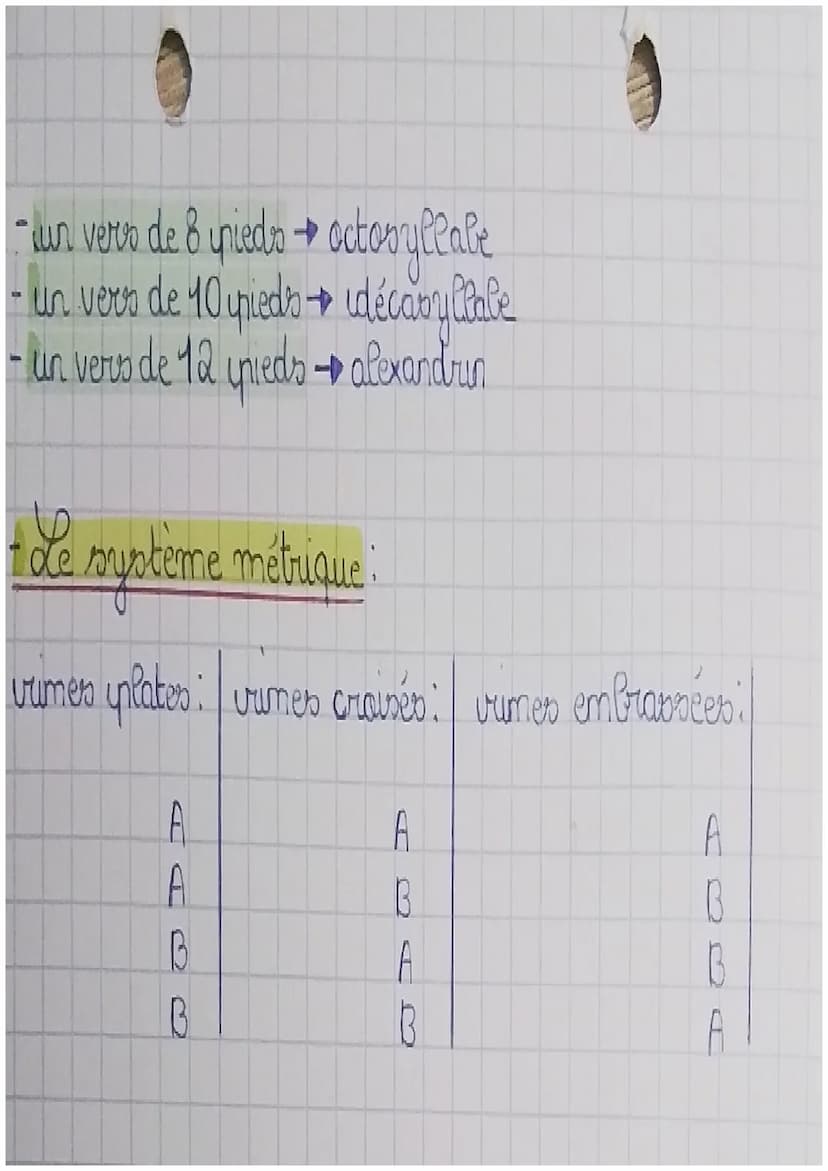 - un vers de 8 pieds → octosyllabe
- un vers de 10 pieds → décasyllabe
- un vers de 12 pieds → alexandrin
- Le système métrique :
rimes plates : rimes croisés : rimes embrassées :
A A A
A B B
B A B
B B A